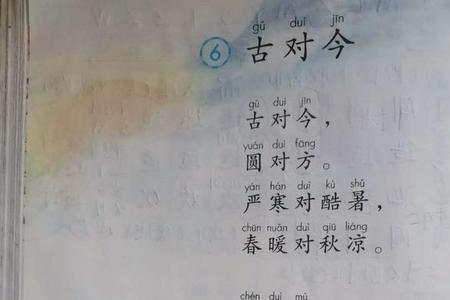 gǔ duì jīn
6 古对今
gǔ duì jīn
古对今，
yuán duì fāng
圆对方。
yán hán duì kù shǔ
严寒对酷暑，
chūn nuǎn duì qiū liáng
春暖对秋凉。
chén duì mù